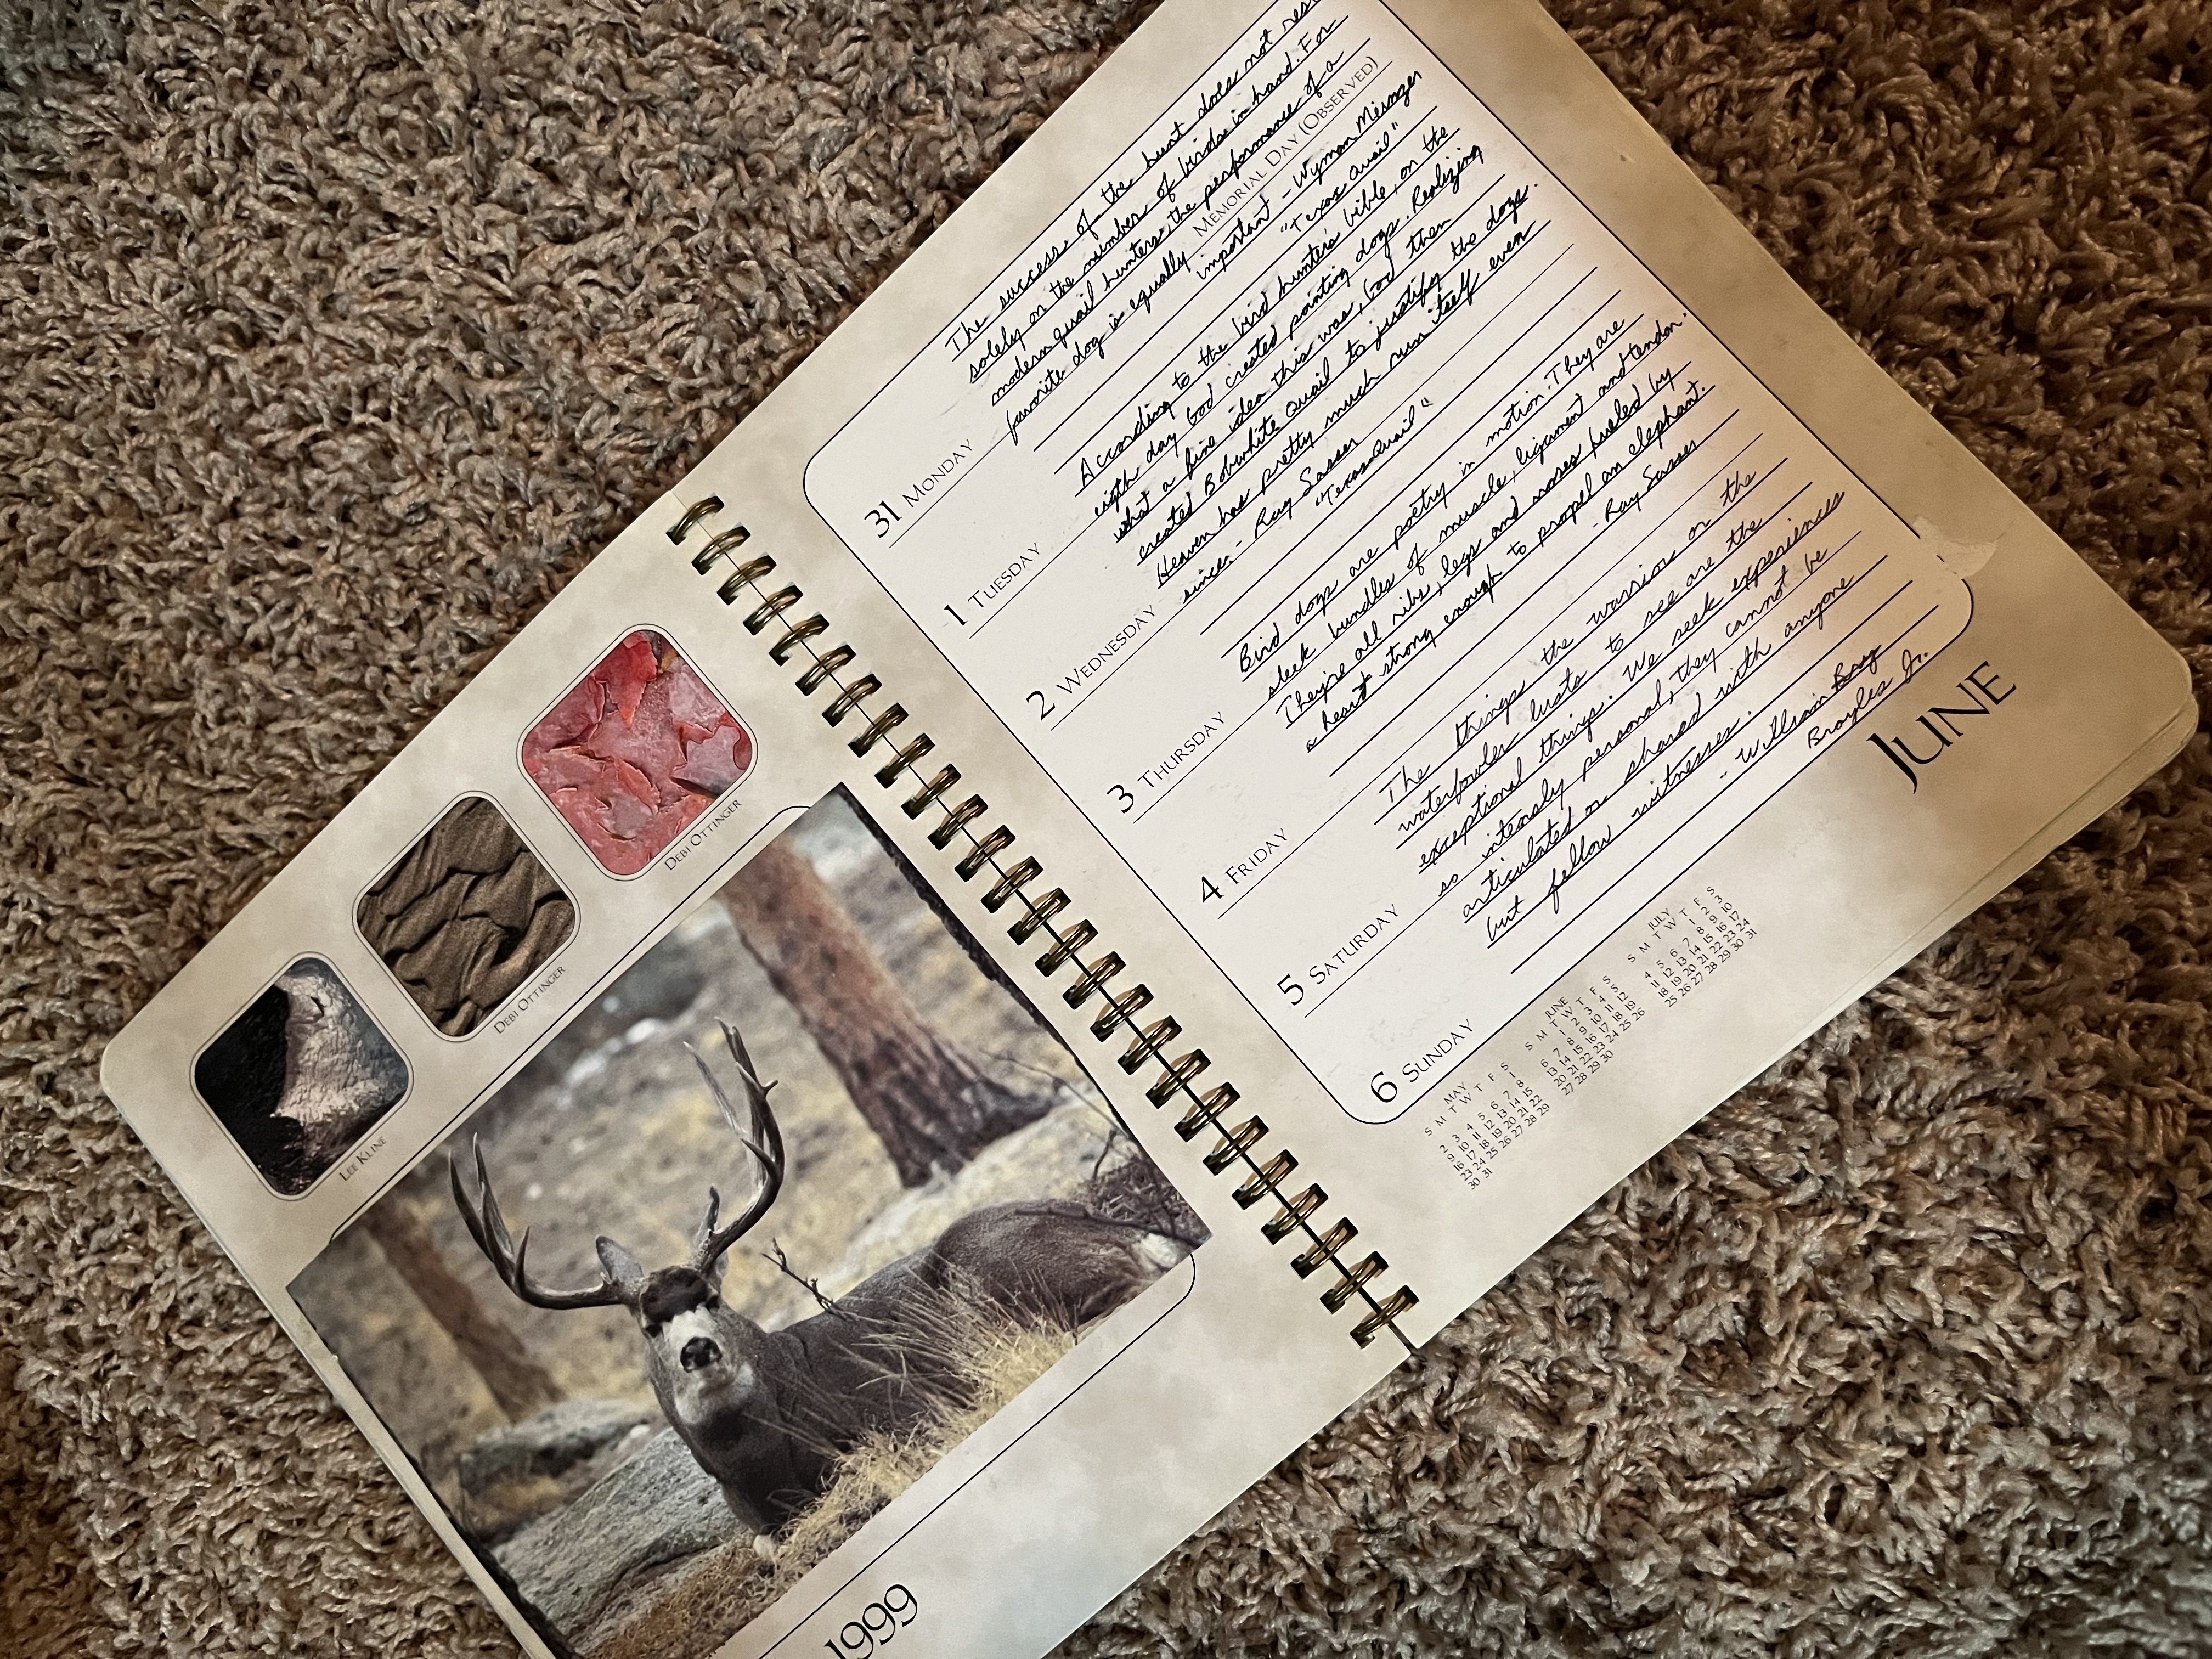 The success of the hunt does not rest
solely on the number of birds in hand. For
modern quail hunters, the performance of a
MEMORIAL DAY (OBSERVED)
31 MONDAY
favorite dog is equally
important - Wyman Meinzer
"Texas Quail"
According to the bird hunter's bible, on the
1 TUESDAY
eigth day God created pointing dogs. Realizing
what a fine idea this was, God then
created Bobwhite Quail to justify the dogs.
Heaven has pretty much run itself even
2 WEDNESDAY
since. - Ray Sasser
"Texas Quail"
Bird dogs are poetry in motion. They are
sleek bundles of muscle, ligament and tendon.
3 THURSDAY
They're all ribs, legs and noses fueled by
a heart strong enough to propel an elephant.
- Ray Sasser
4 FRIDAY
The things the warrior or the
waterfowler lusts to see are the
exceptional things. We seek experiences
so intensly personal, they cannot be
5 SATURDAY
articulated or shared with anyone
but fellow witnesses.
- William Broy
Broyles Jr.
6 SUNDAY
JUNE
MAY
S M T W T F S
1
2 3 4 5 6 7 8
9 10 11 12 13 14 15
16 17 18 19 20 21 22
23 24 25 26 27 28 29
30 31
JUNE
S M T W T F S
1 2 3 4 5
6 7 8 9 10 11 12
13 14 15 16 17 18 19
20 21 22 23 24 25 26
27 28 29 30
JULY
S M T W T F S
1 2 3
4 5 6 7 8 9 10
11 12 13 14 15 16 17
18 19 20 21 22 23 24
25 26 27 28 29 30 31
DEBI OTTINGER
DEBI OTTINGER
LEE KLINE
1999